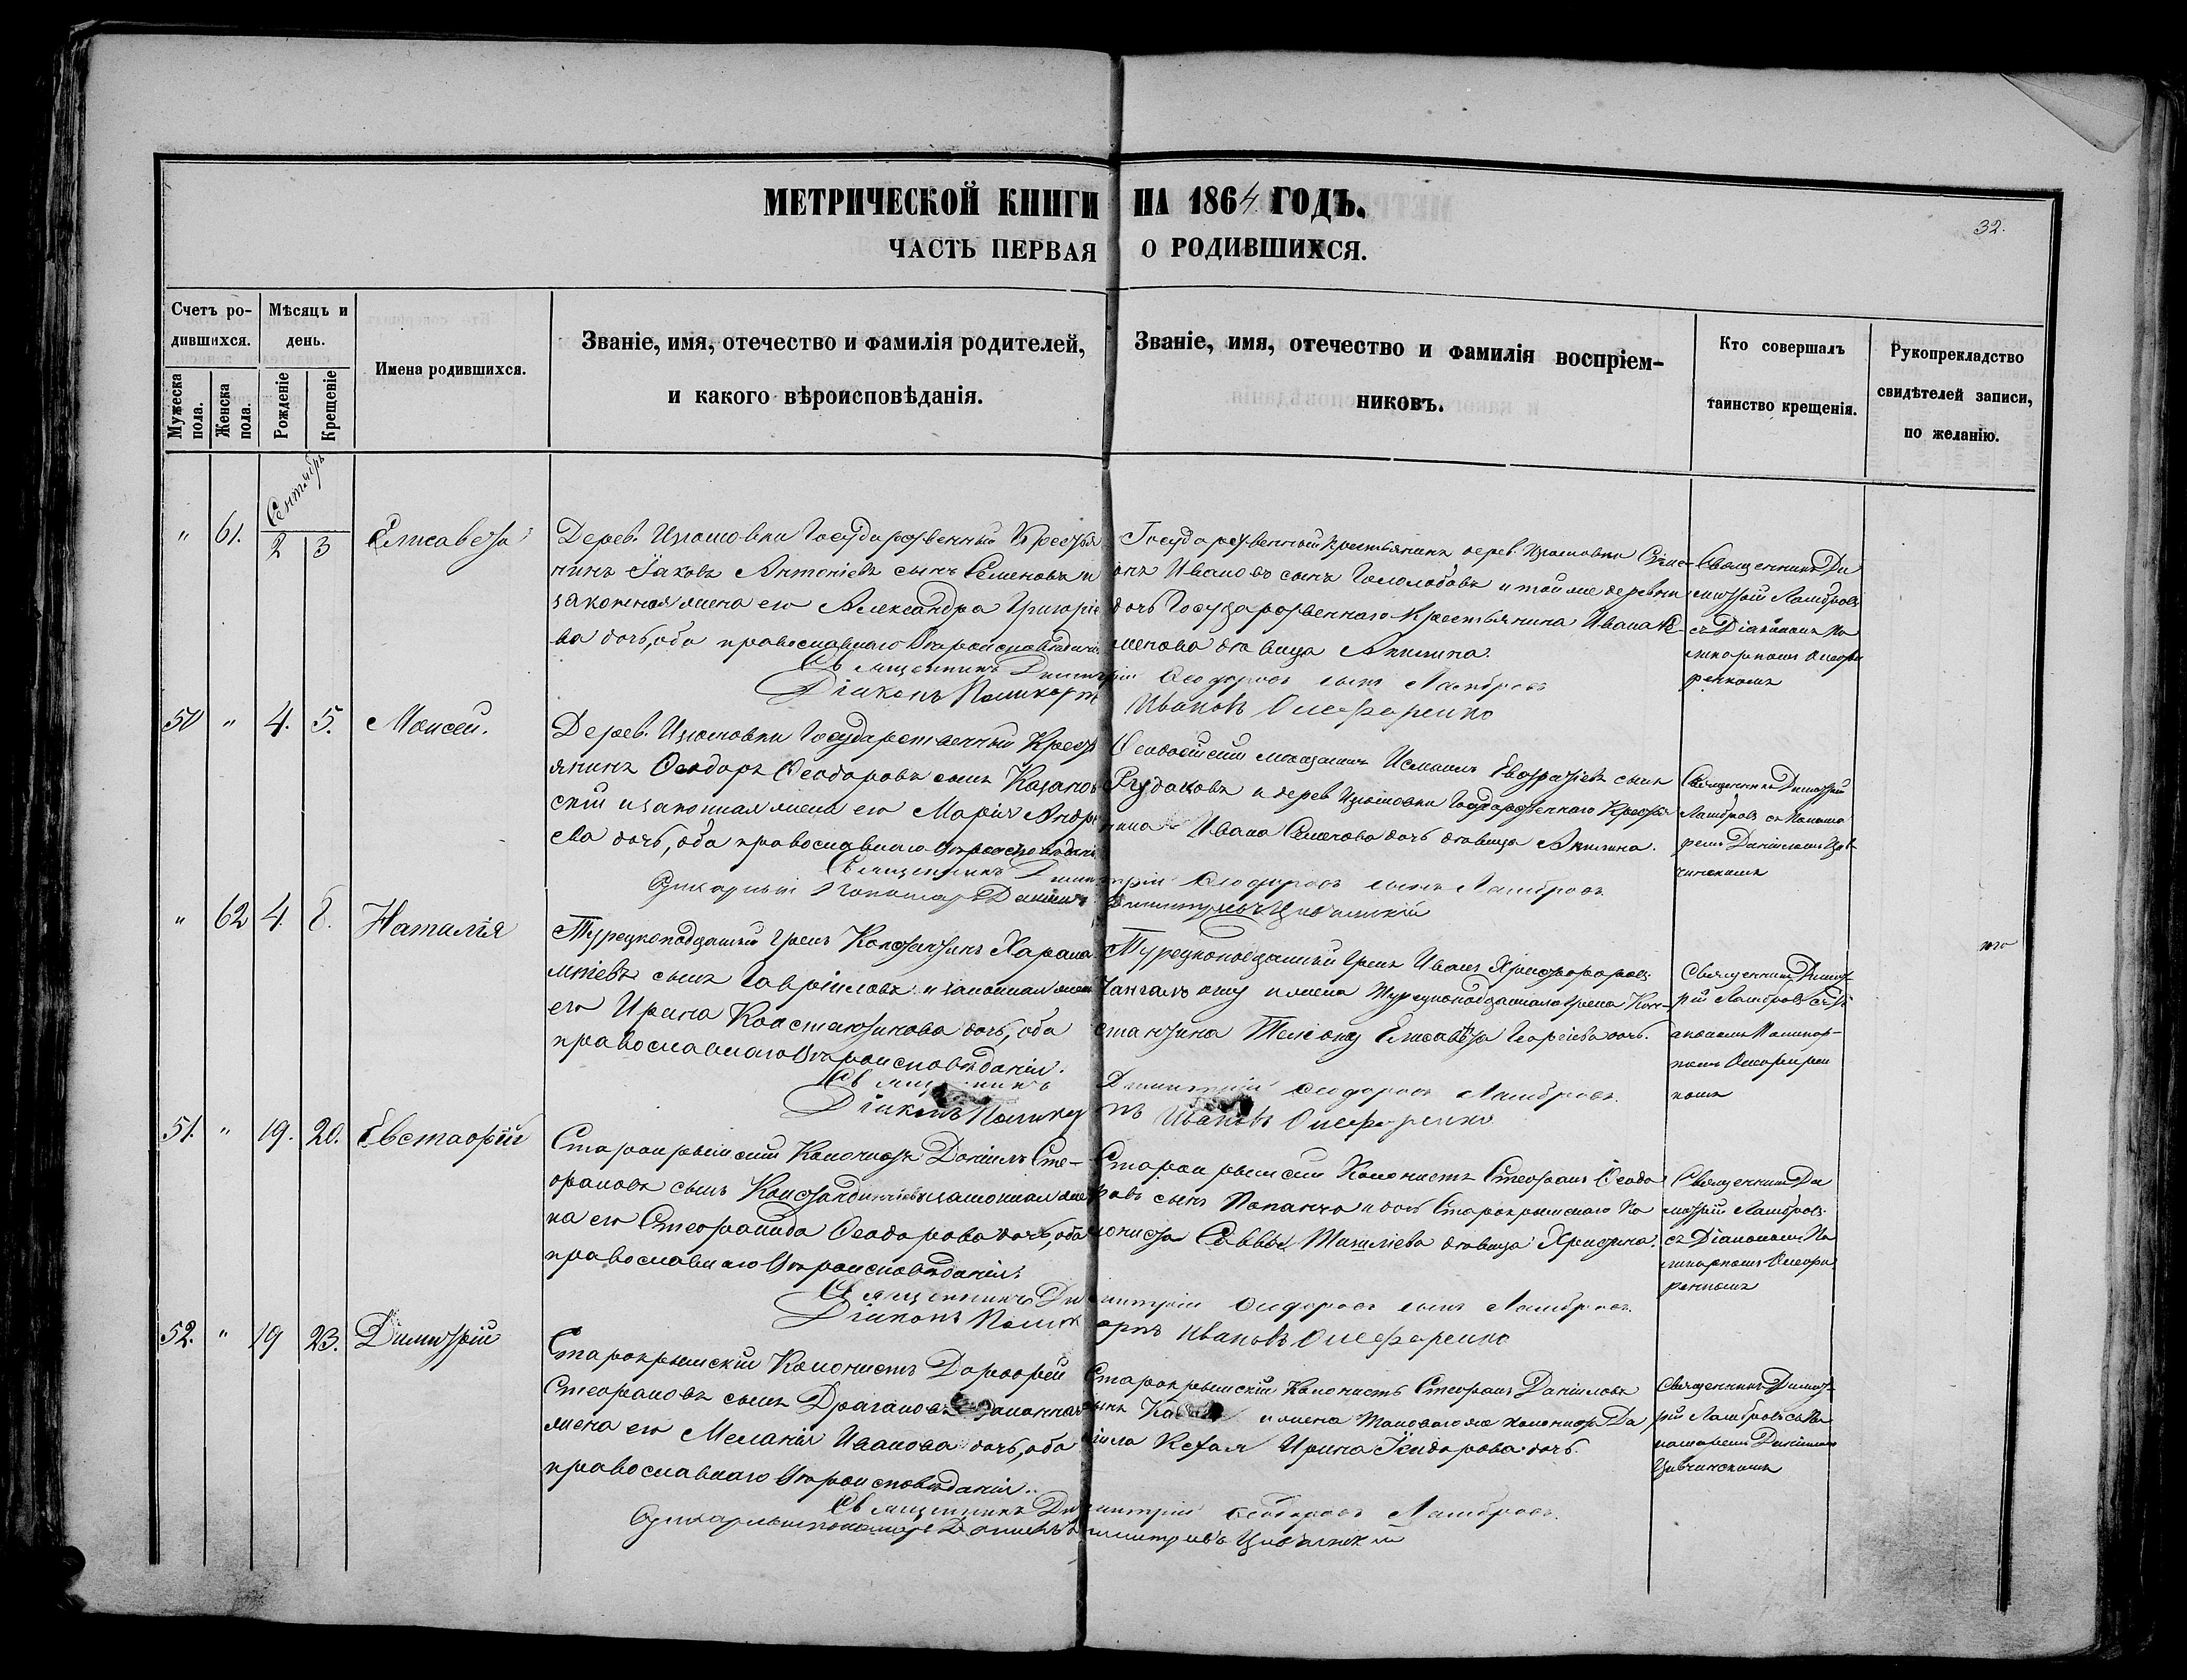 МЕТРИЧЕСКОЙ КНИГИ НА 1864 ГОДЪ.
ЧАСТЬ ПЕРВАЯ О РОДИВШИХСЯ.
32.
Счетъ ро-
дившихся.
Мужеска
пола.
Женска
пола.
Мѣсяцъ и
день.
Рожденіе
Крещеніе
Имена родившихся.
Званіе, имя, отечество и фамилія родителей,
и какого вѣроисповѣданія.
Званіе, имя, отечество и фамилія воспріем-
никовъ.
Кто совершалъ
таинство крещенія.
Рукоприкладство
свидѣтелей записи,
по желанію.
Сентябрь
" 61. 2 3 Елисавета
Дерев. Изюмовки Государственный Крестья
нинъ Іаковъ Антоніевъ сынъ Семеновъ и
законная жена его Александра Григоріе
ва дочь, оба православнаго вѣроисповѣданія
Государственный крестьянинъ дерев. Изюмовки
Ивановъ сынъ Гололобовъ и той же деревни
дочь Государственнаго Крестьянина Ивана Се
менова дѣвица Акилина.
Священникъ Ди
митрій Ламбровъ
съ Діакономъ По
ликарпомъ Олефи
ренкомъ
Священникъ Димитрій Ѳеодоровъ сынъ Ламбровъ
Діаконъ Поликарпъ Ивановъ Олефиренко
50 " 4. 5. Моисей.
Дерев. Изюмовки Государственный Крест
янинъ Ѳеодоръ Ѳеодоровъ сынъ Казанов
скій и законная жена его Марія Андре
ева дочь, оба православнаго вѣроисповѣданія
Ѳеодосійскій мѣщанинъ Исмаилъ сынъ
Рудаковъ и дерев Изюмовки Государственнаго Крестья
нина Ивана Семенова дочь дѣвица Акилина.
Священникъ Димитрій
Ламбровъ съ Понома
ремъ Даніиломъ Цов
чинскимъ
Священникъ Димитрій Ѳеодоровъ сынъ Ламбровъ
Пономарь Даніилъ
" 62 4. 8. Наталія
Турецкоподданный Грекъ Константинъ Харала
мпіевъ сынъ Гавріиловъ и законная жена
его Ирина Константинова дочь, оба
православнаго вѣроисповѣданія.
Турецкоподданный Грекъ Иванъ Христофоровъ
и жена Турецкоподданнаго Грека Кон-
стантина Елисавета Георгіева дочь.
Священникъ Димит
рій Ламбровъ съ Ді
акономъ Поликар-
помъ Олефирен
комъ
Священникъ Димитрій Ѳеодоровъ Ламбровъ.
Діаконъ Поликарпъ Ивановъ Олефиренко
51. " 19. 20. Евстафій
Старокрымскій Колонистъ Даніилъ Сте-
фановъ сынъ и законная же
на его Стефанида Ѳеодорова дочь, оба
православнаго вѣроисповѣданія.
Старокрымскій Колонистъ Стефанъ Ѳеодо
ровъ сынъ Папанчо и дочь Старокрымскаго Ко
лониста Саввы дѣвица Христина.
Священникъ Ди
митрій Ламбровъ
съ Діакономъ По
ликарпомъ Олефи
ренкомъ
Священникъ Димитрій Ѳеодоровъ сынъ Ламбровъ.
Діаконъ Поликарпъ Ивановъ Олефиренко
52. " 19 23. Димитрій
Старокрымскій Колонистъ Дороѳей
Стефановъ сынъ Драгановъ законная
жена его Меланія Иванова дочь, оба
православнаго вѣроисповѣданія.
Старокрымскій Колонистъ Стефанъ Даніиловъ
сынъ и жена таковаго же колониста Да
ніила Кефал Ирина дочь
Священникъ Димит
рій Ламбровъ съ По
номаремъ Даніиломъ
Цовчинскимъ
Священникъ Димитрій Ѳеодоровъ Ламбровъ.